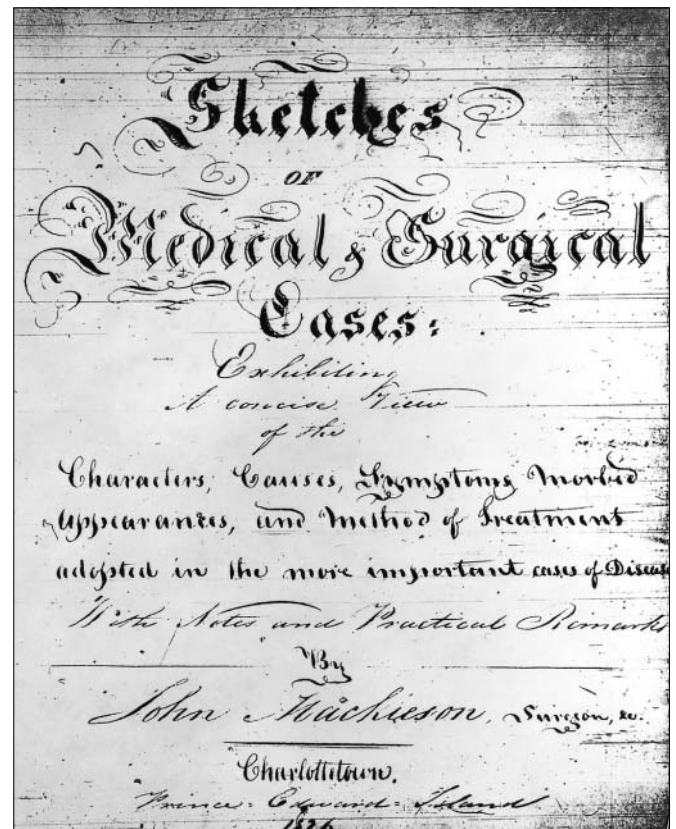 Sketches
OF
Medical & Surgical
Cases:
Exhibiting
A concise View
of the
Characters, Causes, Symptoms Morbid
Appearances, and Method of Treatment
adopted in the more important cases of Disease
With Notes and Practical Remarks
By
John Mackieson, Surgeon, &c.
Charlottetown.
Prince = Edward = Island
1826